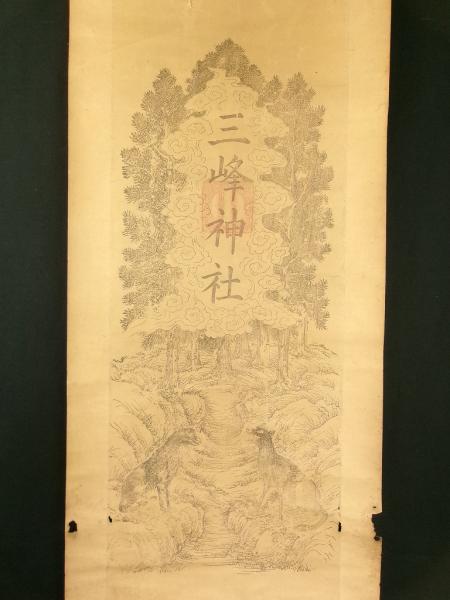 三峰神社